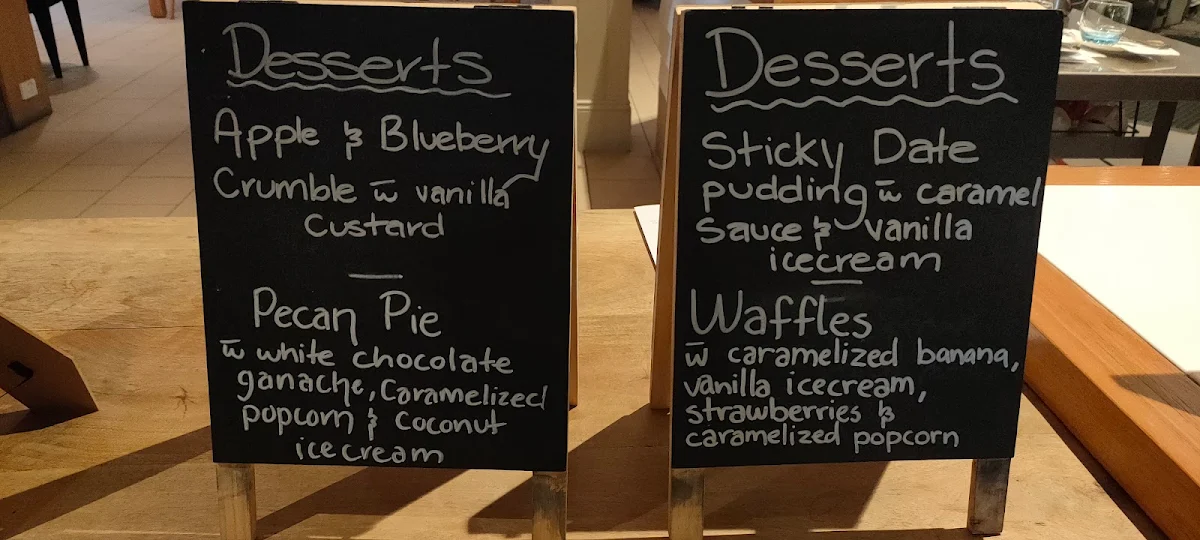 Desserts
Apple & Blueberry
Crumble w̄ vanilla
Custard
—
Pecan Pie
w̄ white chocolate
ganache, Caramelized
popcorn & Coconut
icecream
Desserts
Sticky Date
pudding w̄ caramel
Sauce & vanilla
icecream
—
Waffles
w̄ caramelized banana,
vanilla icecream,
strawberries &
caramelized popcorn